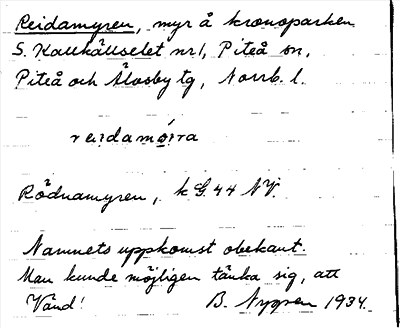 Reidamyren, myr å kronoparken
S. Kallhållselet nr 1, Piteå sn,
Piteå och Älvsby tg, Norrb. l.
reidamọ́ra
Rödnamyren, k G. 44 NV.
Namnets uppkomst obekant.
Man kunde möjligen tänka sig, att
Vänd! B. Nygren 1934.